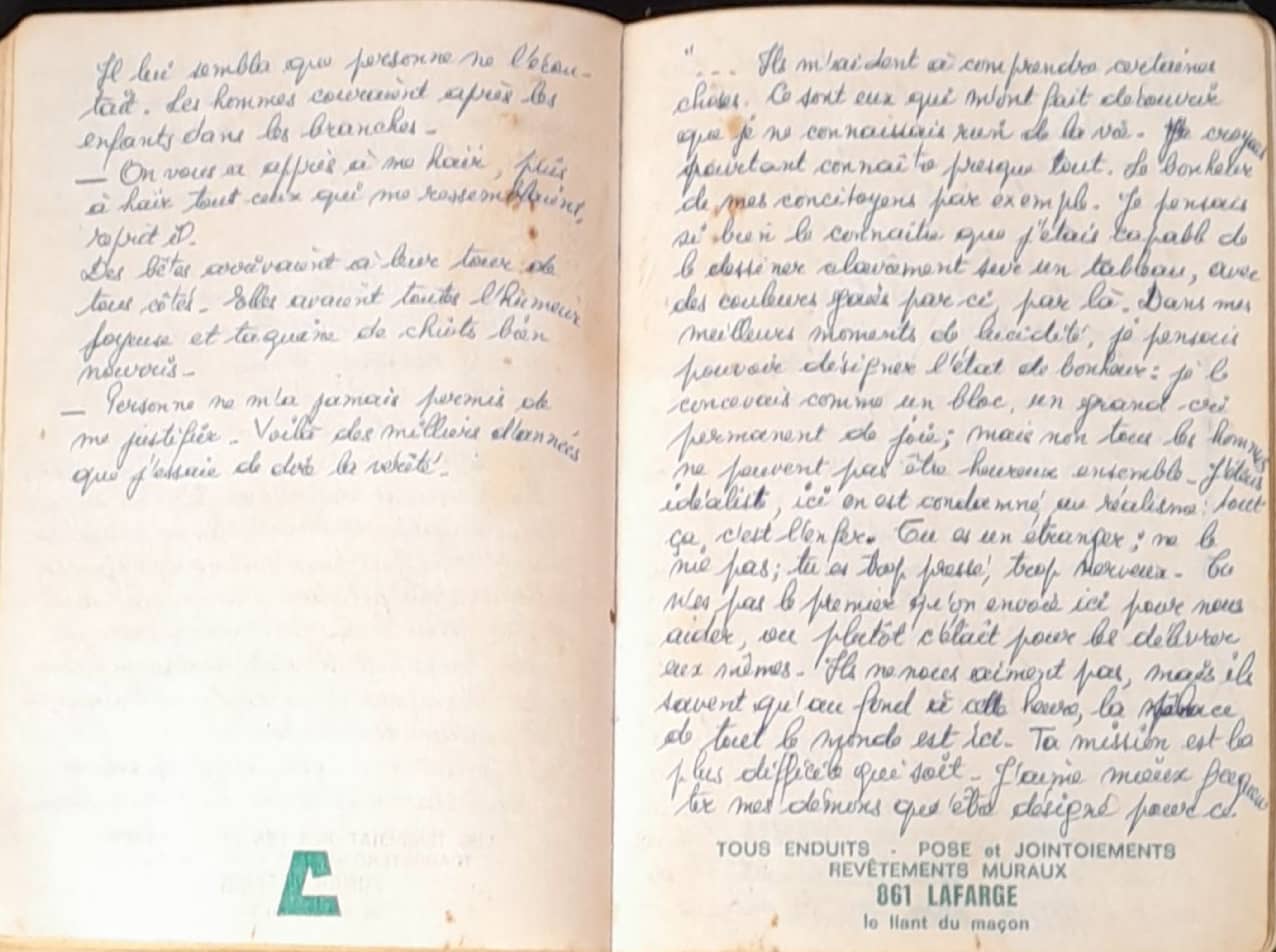 Il lui sembla que personne ne l'écou-
tait. Les hommes couraient après les
enfants dans les branches.
— On vous a appris à me haïr, puis
à haïr tout ceux qui me ressemblaient,
reprit-il.
Des bêtes arrivaient à leur tour de
tous côtés. Elles avaient toutes l'humeur
joyeuse et taquine de chiots bien
nourris.
— Personne ne m'a jamais permis de
me justifier. Voilà des milliers d'années
que j'essaie de dire la vérité.
"... Ils m'aident à comprendre certaines
choses. Ce sont eux qui m'ont fait découvrir
que je ne connaissais rien de la vie. Je croyais
pourtant connaître presque tout. Le bonheur
de mes concitoyens par exemple. Je pensais
si bien le connaître que j'étais capable de
le dessiner clairement sur un tableau, avec
des couleurs gaies par ci, par là. Dans mes
meilleurs moments de lucidité, je pensais
pouvoir désigner l'état de bonheur : je le
concevais comme un bloc, un grand cri
permanent de joie ; mais non tous les hommes
ne peuvent pas être heureux ensemble. J'étais
idéaliste, ici on est condamné au réalisme : tout
ça, c'est l'enfer. Tu es un étranger ; ne le
nie pas ; tu es trop pressé, trop nerveux. Tu
n'es pas le premier qu'on envoie ici pour nous
aider, ou plutôt c'était pour les délivrer
eux mêmes. Ils ne nous aiment pas, mais ils
savent qu'au fond à cette heure, la menace
de tout le monde est ici. Ta mission est la
plus difficile qui soit. J'aime mieux
mes démons que d'être désigné pour ce
TOUS ENDUITS - POSE et JOINTOIEMENTS
REVÊTEMENTS MURAUX
861 LAFARGE
le liant du maçon